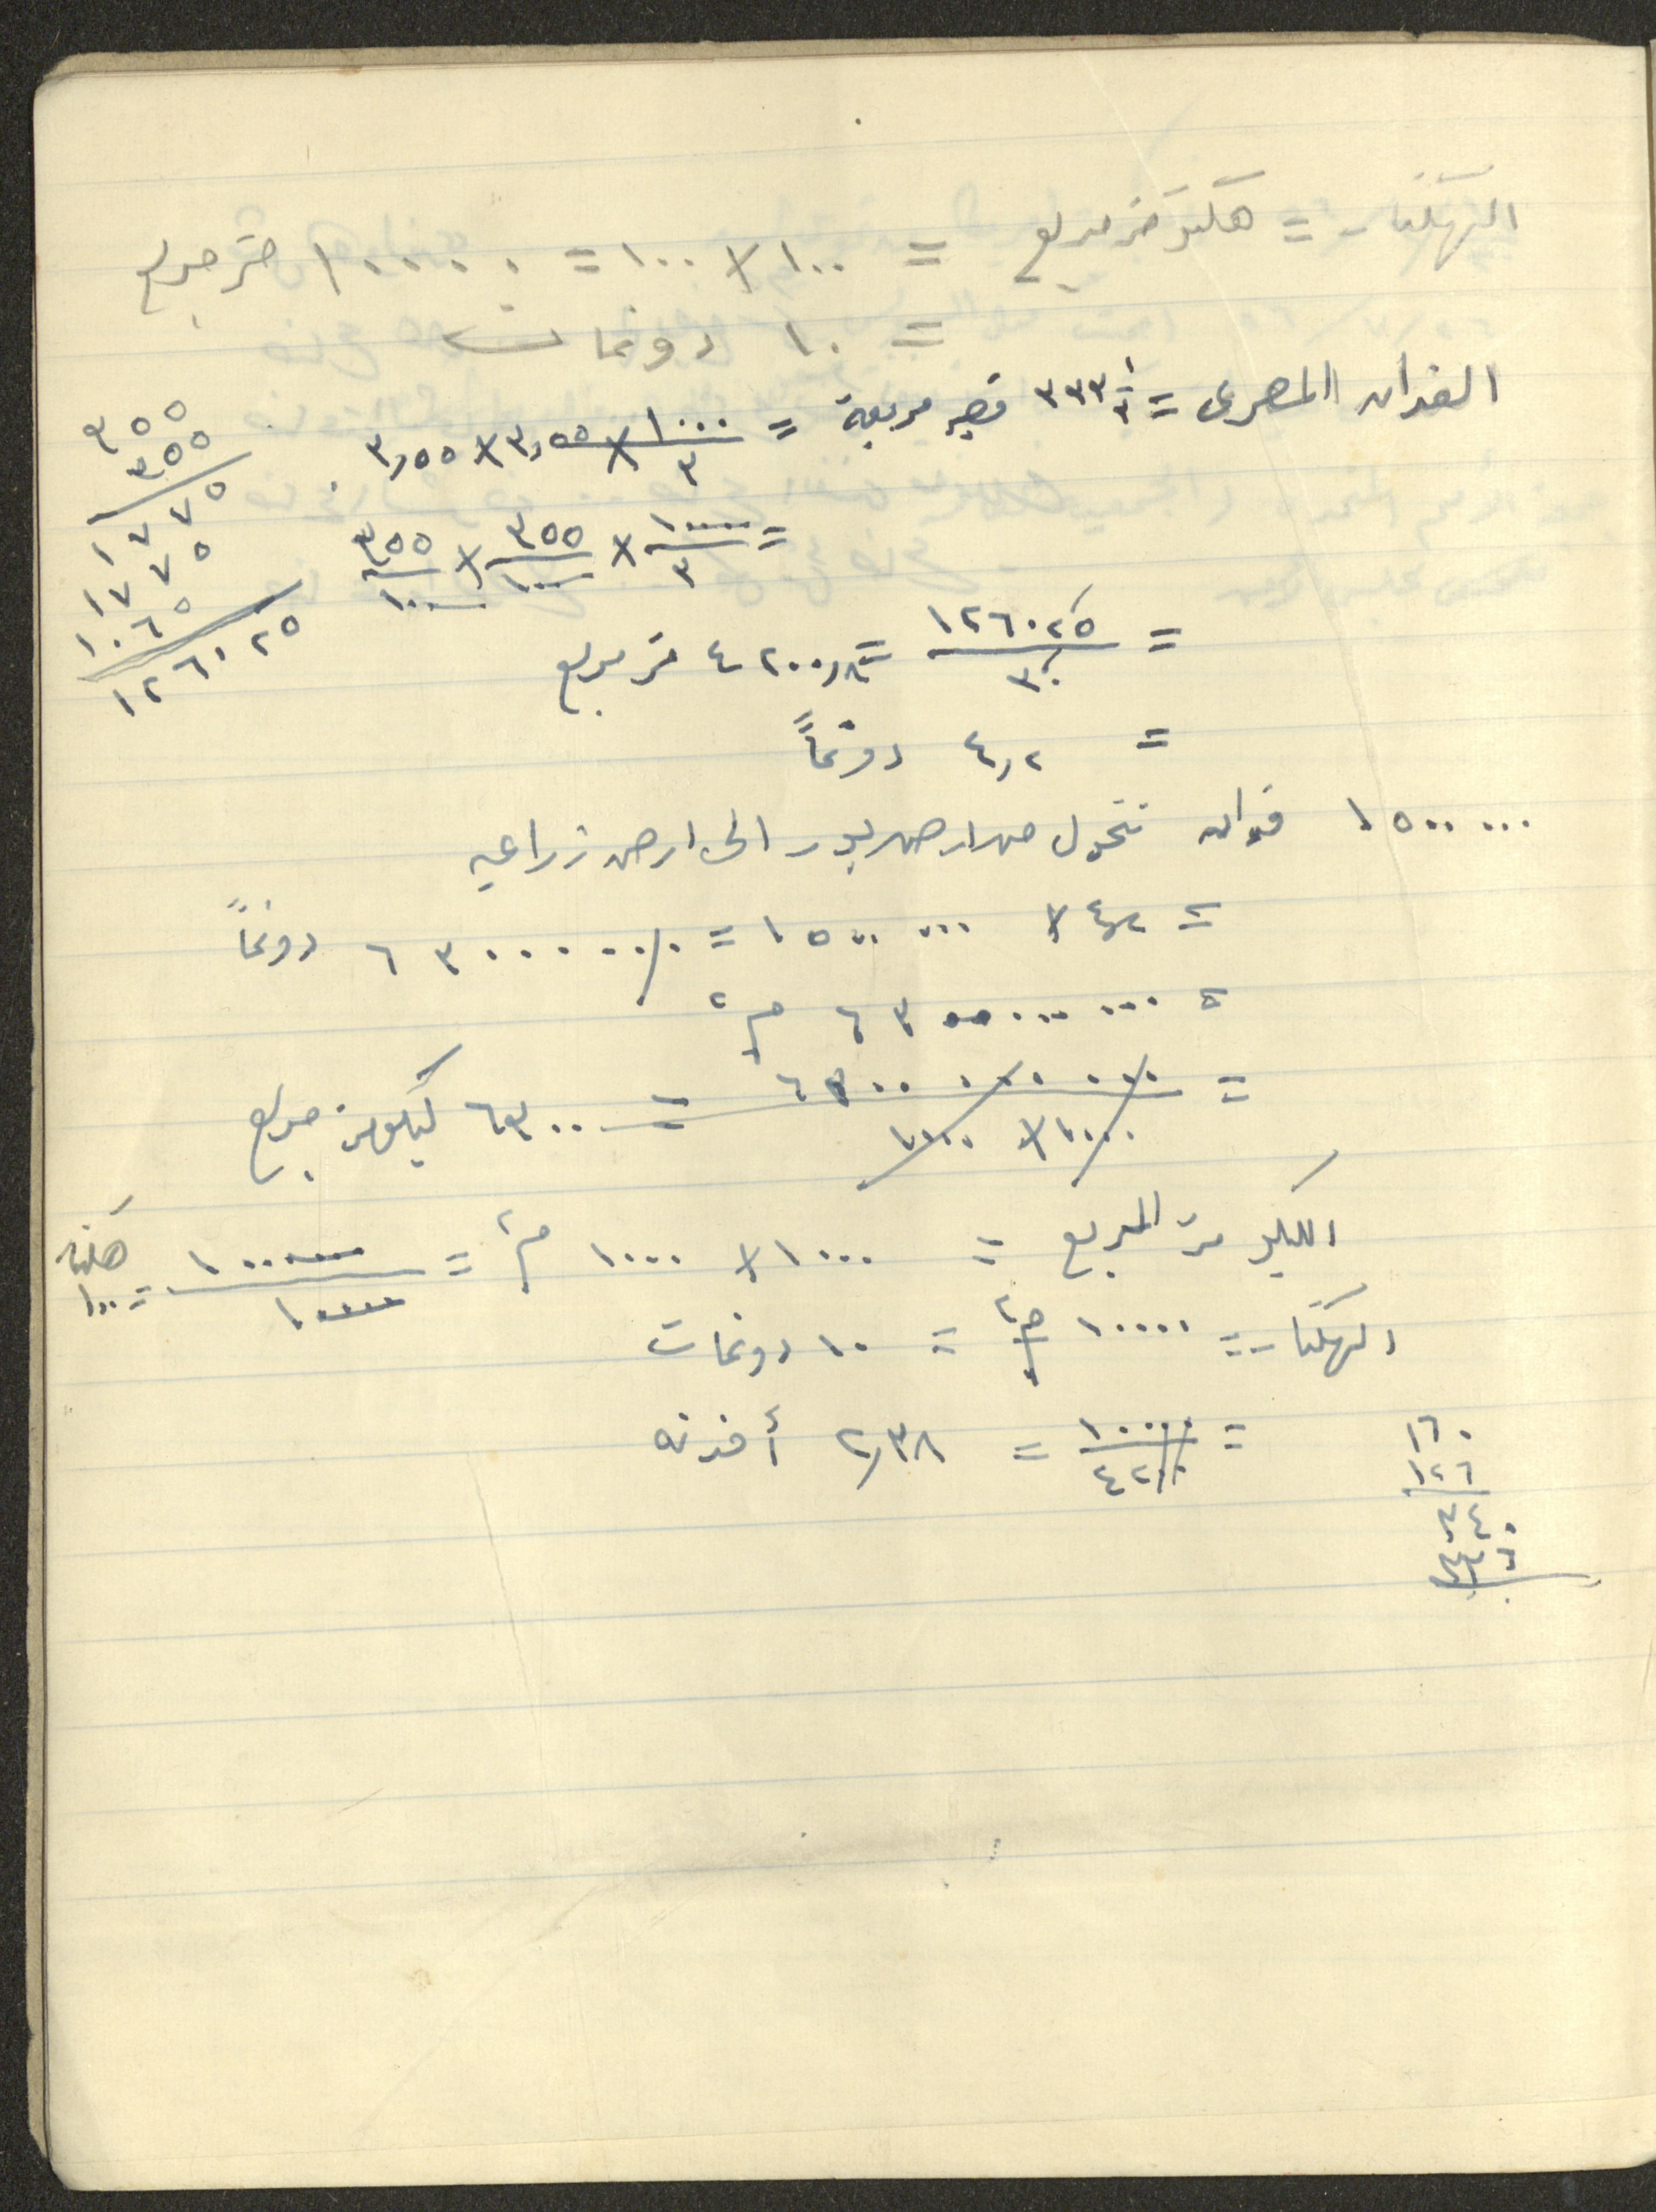 الهكتار = هكتومتر مربع = ١٠٠ × ١٠٠ = ١٠٠٠٠ متر مربع
= ١٠ دونمات
الفدان المصرى = ٣٣٣ ١/٣ قصبة مربعة = ١٠٠٠/٣ × ٣,٥٥ × ٣,٥٥
= ١٠٠٠٠/٣ × ٣٥٥/١٠٠ × ٣٥٥/١٠٠
= ١٢٦٠٢٥/٣٠ = ٤٢٠٠,٨ متر مربع
= ٤,٢ دونماً
٣٥٥
٣٥٥
١٧٧٥
١٧٧٥
١٠٦٥
١٢٦٠٢٥
١٥٠٠٠٠٠ فدان تتحول من ارض بور الى ارض زراعيه
= ٤,٢ × ١٥٠٠٠٠٠ = ٦٣٠٠٠٠٠ دونماً
= ٦٣٠٠٠٠٠٠٠٠ م٢
= ٦٣٠٠٠٠٠٠٠٠/١٠٠٠ × ١٠٠٠ = ٦٣٠٠ كيلومتر مربع
الكيلو متر المربع = ١٠٠٠ × ١٠٠٠ م٢ = ١٠٠٠٠٠٠/١٠٠٠٠ = ١٠٠ هكتار
الهكتار = ١٠٠٠٠ م٢ = ١٠ دونمات
= ١٠٠٠٠/٤٢٠٠ = ٢,٣٨ أفدنه
١٦٠
١٢٦
٣٤٠
٣٣٦